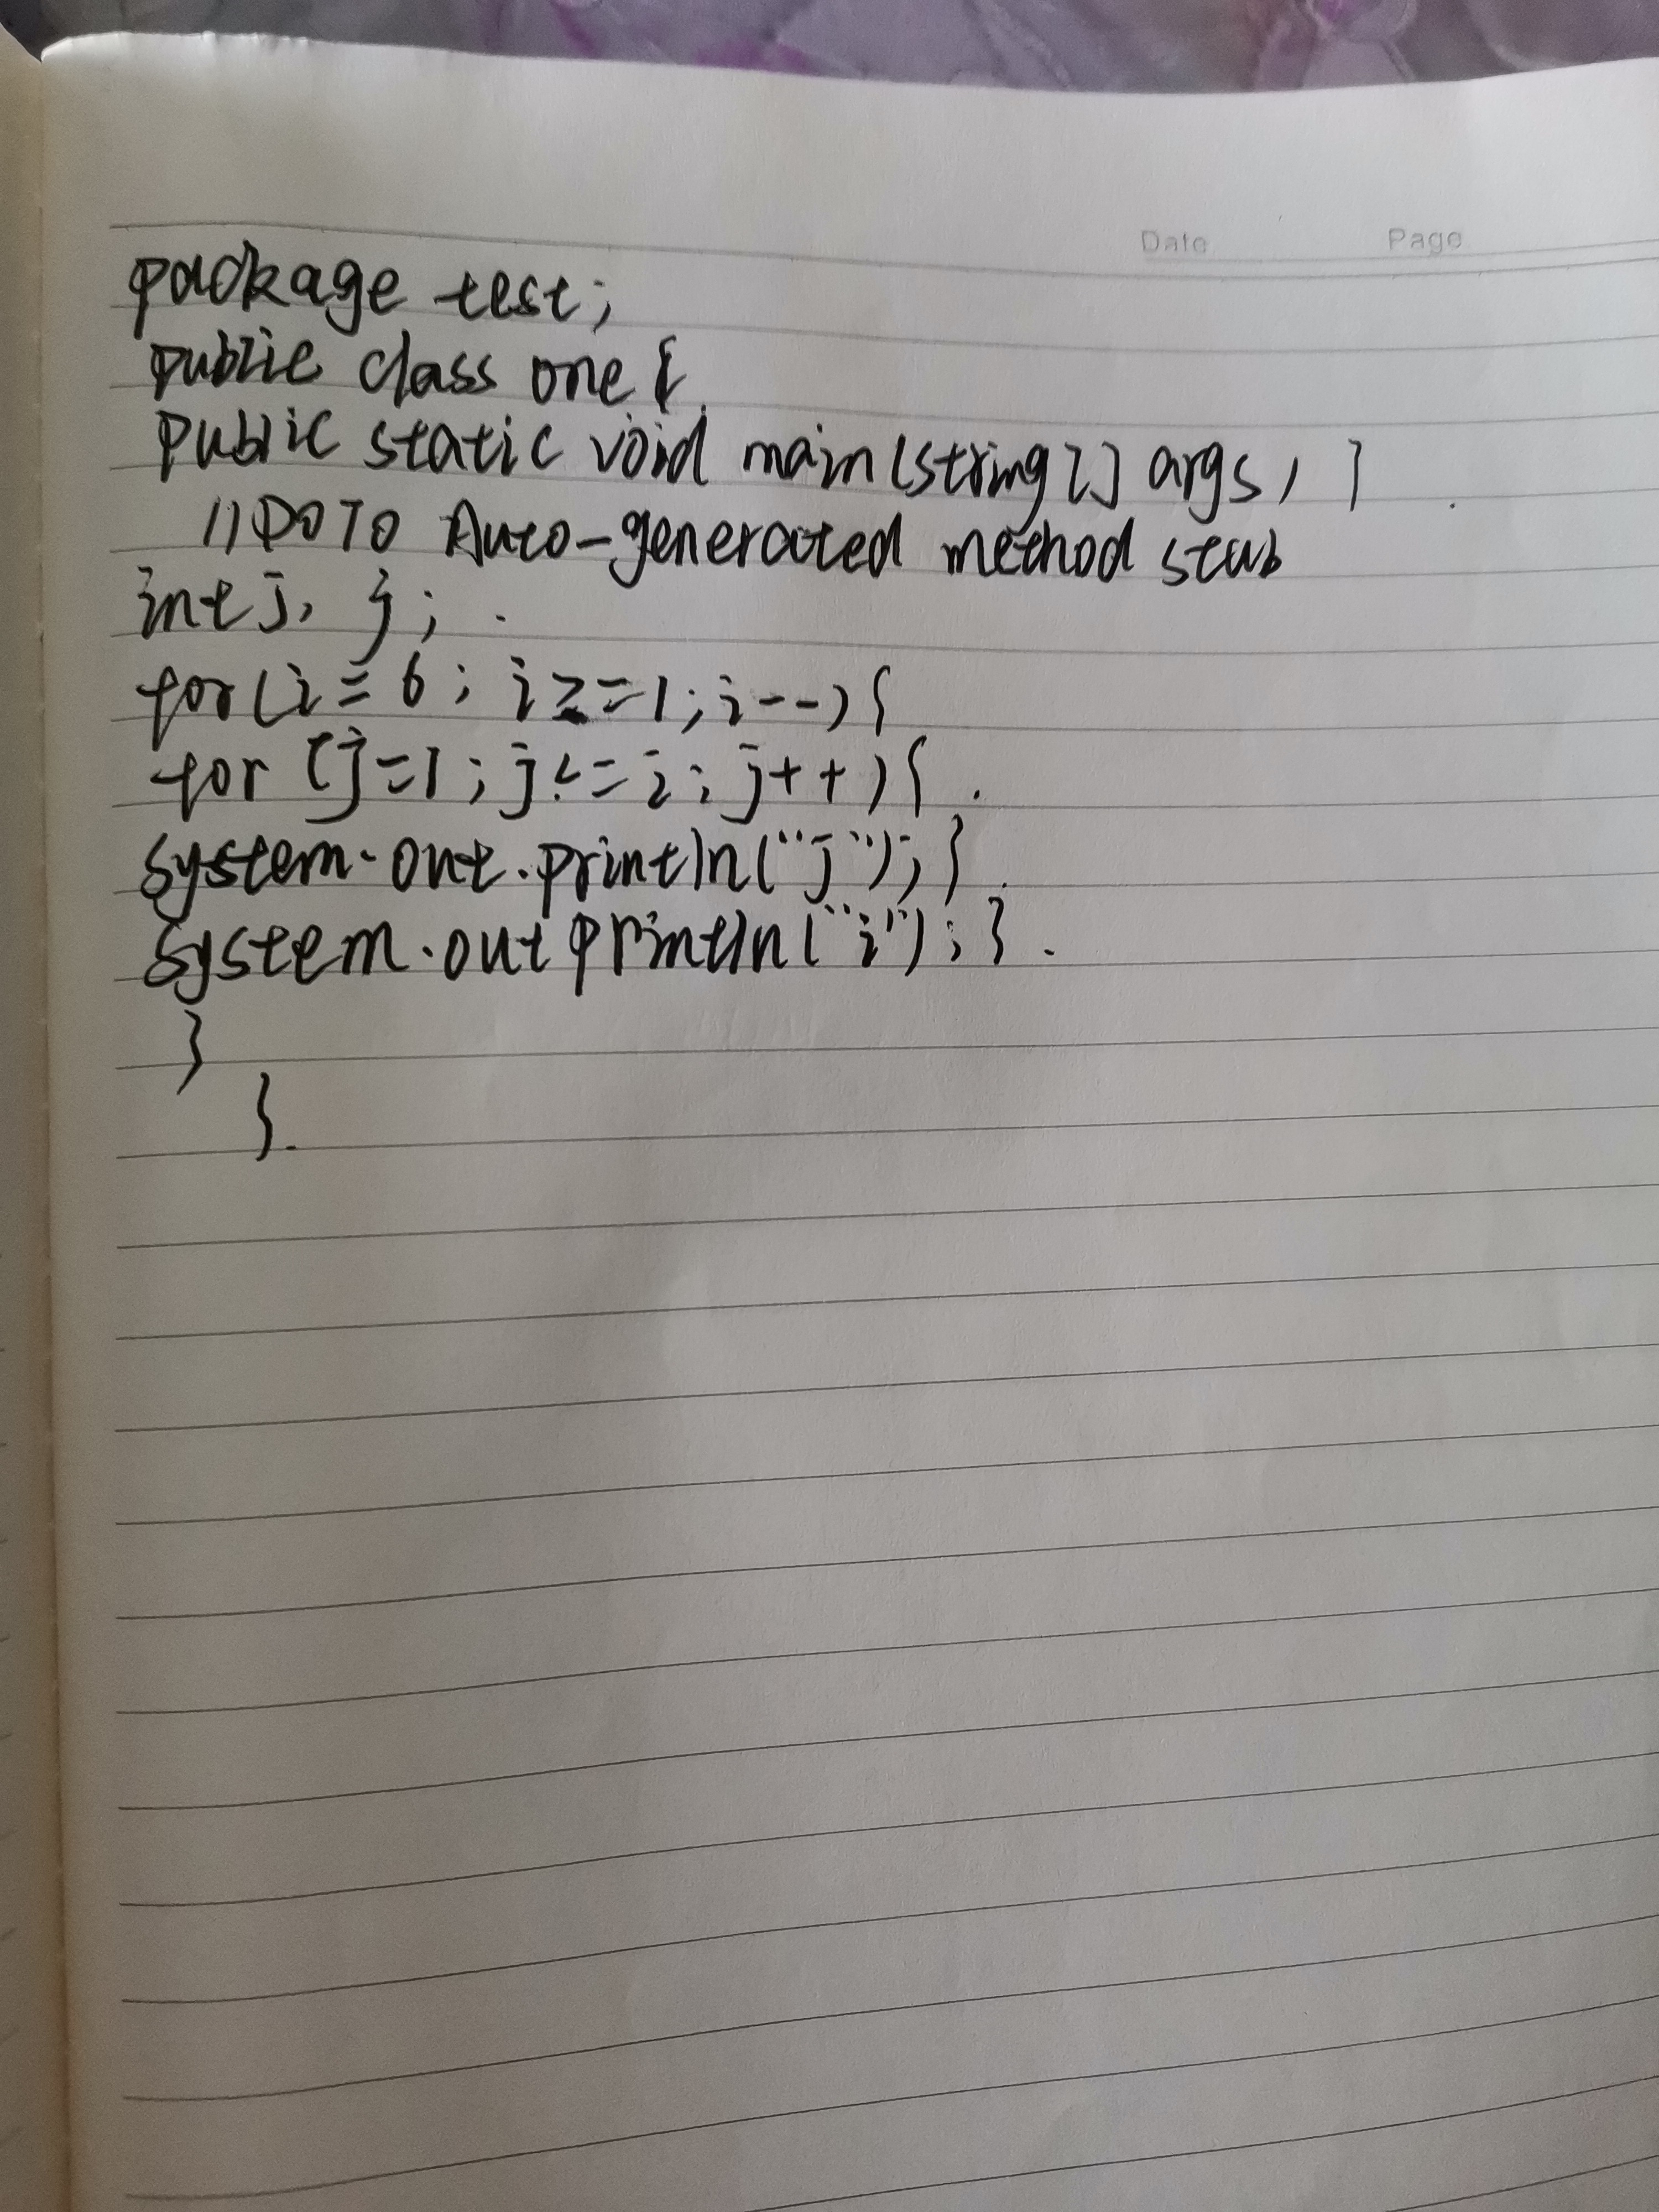 Date Page
package test;
public class one {
public static void main(string[] args) }
//DOTO Auto-generated method stub
int j, j;
for(i=6; i>=1;i--){
for (j=1; j<=i; j++){
system.out.println("j");}
system.out println("i");}
}
}